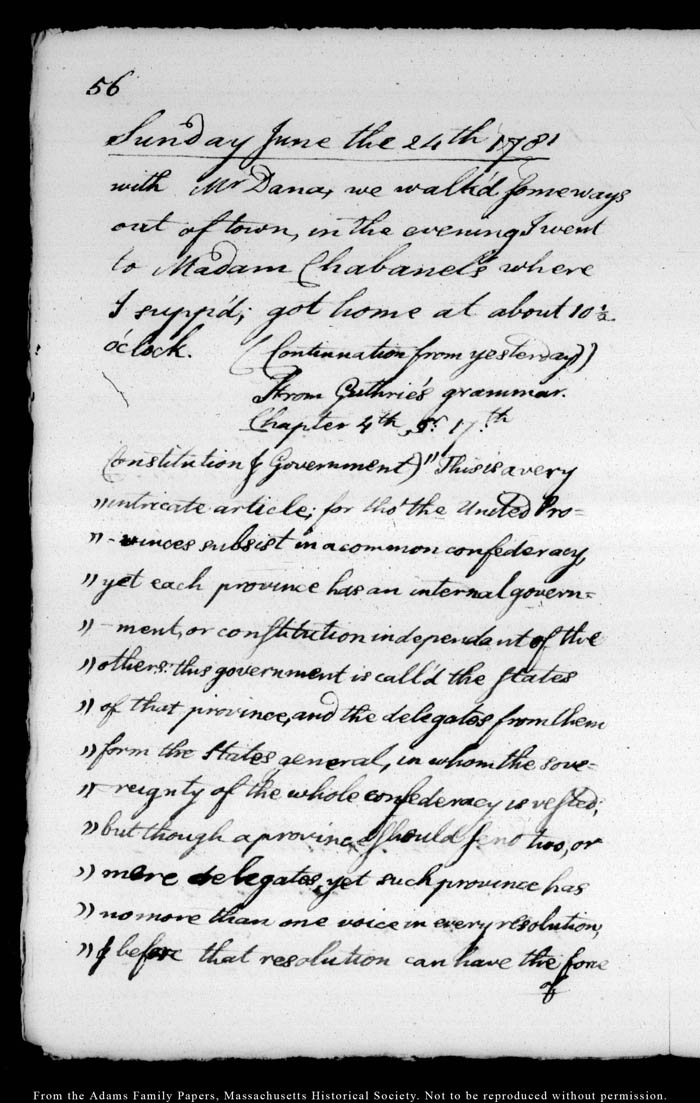 56
Sunday June the 24th 1781
with Mr Dana, we walk'd someways
out of town, in the evening I went
to Madam Chabanel's where
I supp'd; got home at about 10 1/2
o'clock. (Continuation from yesterday))
From Guthrie's grammar.
Chapter 4th, p. 17th
Constitution & Government) "This is a very
"intricate article; for tho' the United Pro=
"-vinces subsist in a common confederacy,
"yet each province has an internal govern=
"-ment, or constitution independant of the
"others: this government is call'd the States
"of that province, and the delegates from them
"form the States general, in whom the sove=
"reignty of the whole confederacy is vested;
"but though a province should send two, or
"more delegates, yet such province has
"no more than one voice in every resolution;
"& before that resolution can have the force
of
From the Adams Family Papers, Massachusetts Historical Society. Not to be reproduced without permission.